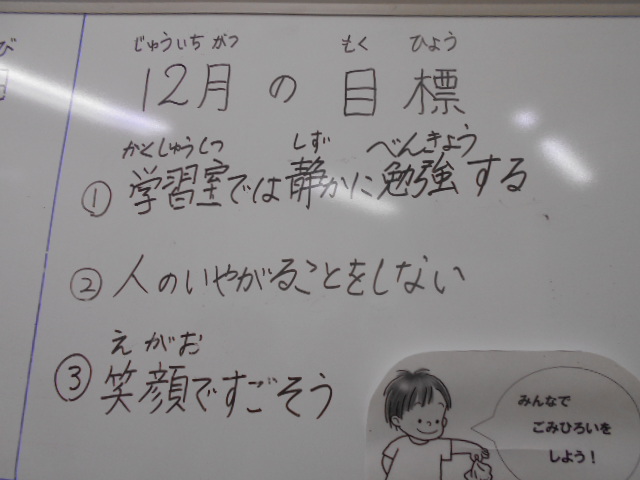 じゅういち がつ もく ひょう
12月の目標
がくしゅうしつ しず べんきょう
①学習室では静かに勉強する
②人のいやがることをしない
え がお
③笑顔ですごそう
みんなで
ごみひろいを
しよう！